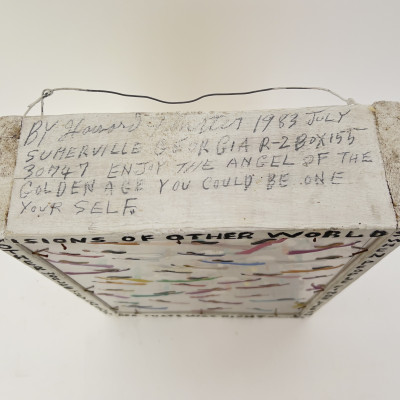 BY Howard Finster 1983 JULY
SUMERVILLE GEORGIA R-2 BOX 155
30747 ENJOY THE ANGEL OF THE
GOLDEN AGE YOU COULD BE ONE
YOUR SELF.
VISIONS OF OTHER WORLD